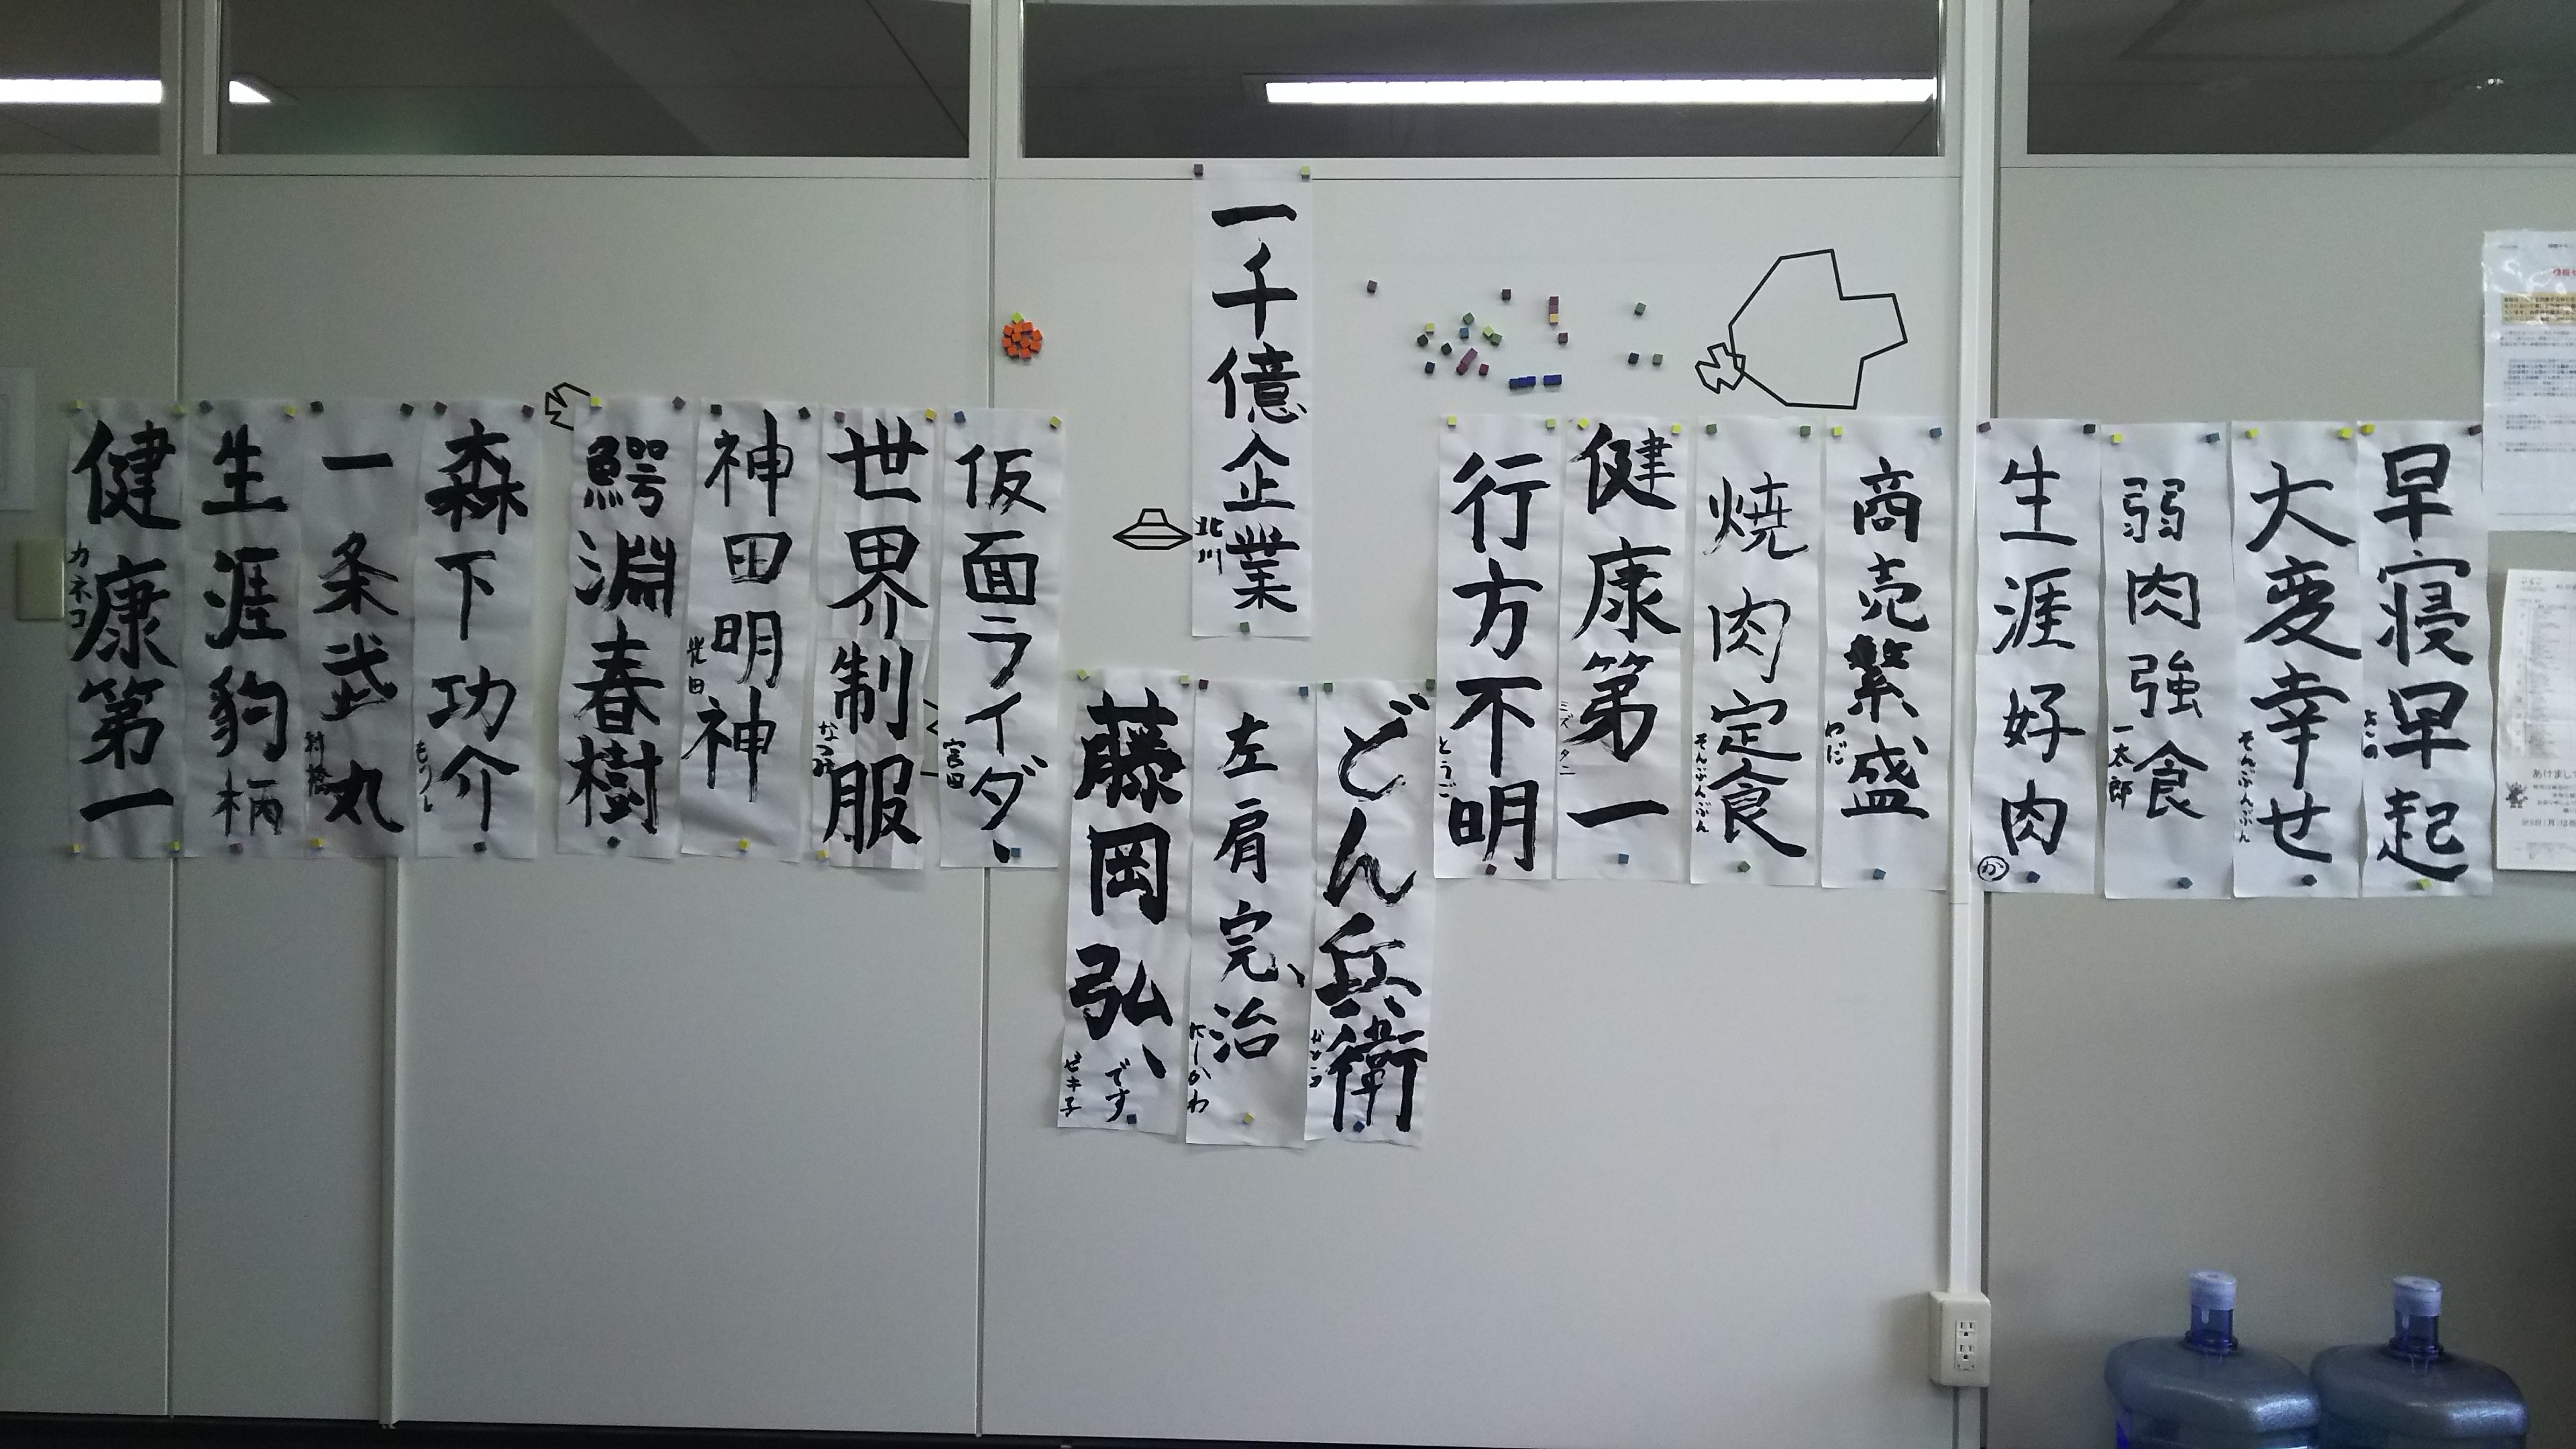 早寝早起
よこの
大変幸せ
そんぶんぶん
弱肉強食
一太郎
生涯好肉
か
商売繁盛
わだ
焼肉定食
そんぶんぶん
健康第一
ミズタニ
行方不明
とうご
一千億企業
北川
どん兵衛
左肩完治
にしかわ
藤岡弘、です
ピキ子
仮面ライダー
宮田
世界制服
神田明神
鰐淵春樹
森下功介
もりし
一条武丸
村橋
生涯豹柄
健康第一
カネコ
あけまして